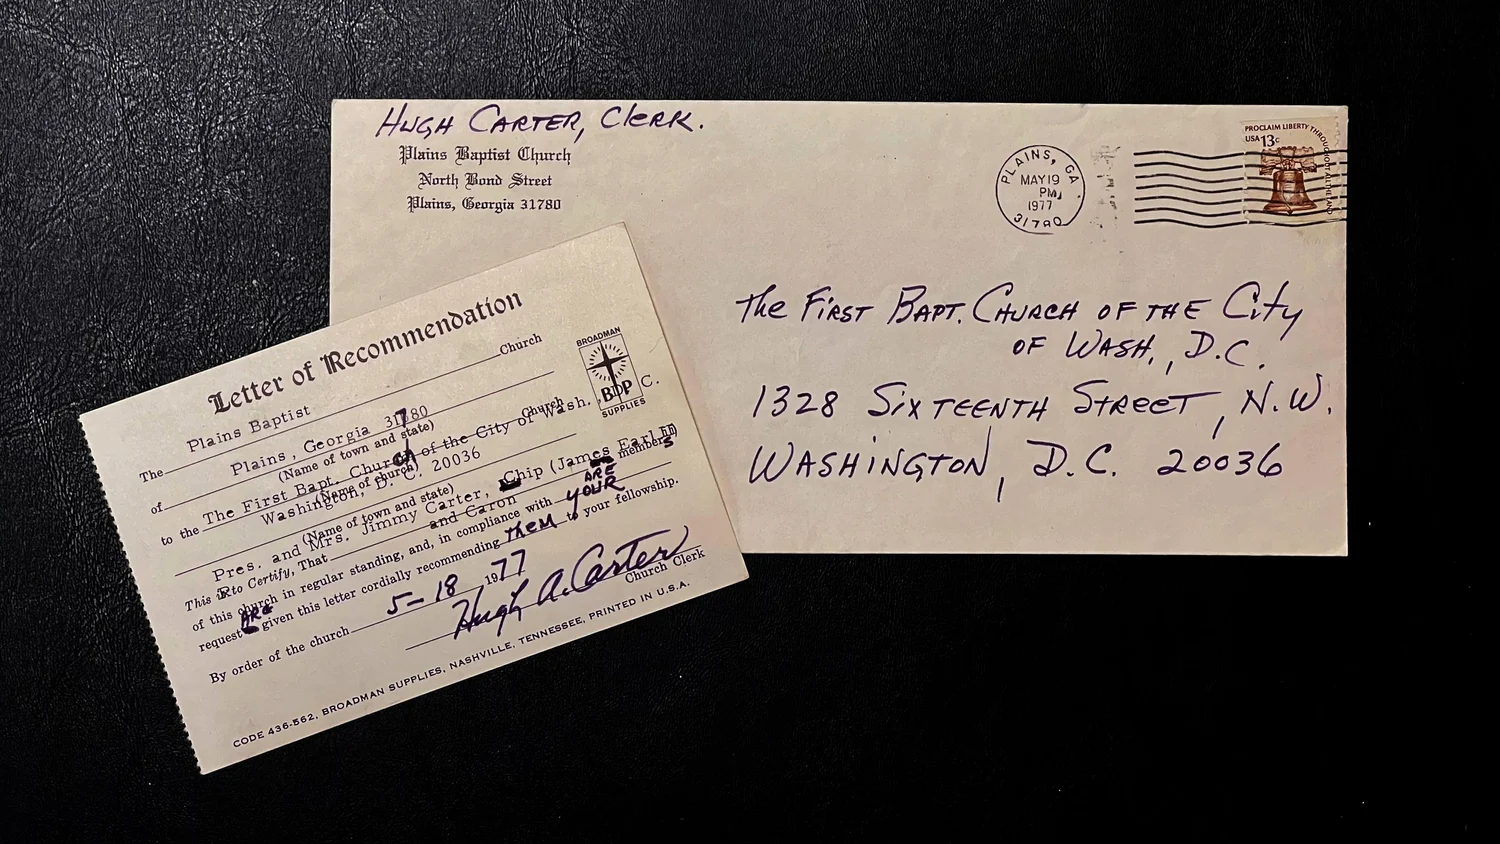 HUGH CARTER, Clerk.
Plains Baptist Church
North Bond Street
Plains, Georgia 31780
PLAINS, GA
MAY 19
PM
1977
31780
PROCLAIM LIBERTY THROUGHOUT ALL THE LAND
USA 13c
The FIRST BAPT. CHURCH OF THE City
OF WASH., D.C.
1328 SIXTEENTH STREET, N.W.
WASHINGTON, D.C. 20036
Letter of Recommendation
BROADMAN
BDP
SUPPLIES
The Plains Baptist Church
of Plains, Georgia 31780
(Name of town and state)
to the The First Bapt. Church of the City of Wash., D. C. Church
(Name of church)
Washington, D. C. 20036
(Name of town and state)
Pres. and Mrs. Jimmy Carter, Chip (James Earl III)
This is to Certify, That and Caron ARE members
of this church in regular standing, and, in compliance with YOUR
request ARE given this letter cordially recommending THEM to your fellowship.
By order of the church 5-18 1977
Hugh A. Carter
Church Clerk
CODE 436-562, BROADMAN SUPPLIES, NASHVILLE, TENNESSEE, PRINTED IN U.S.A.